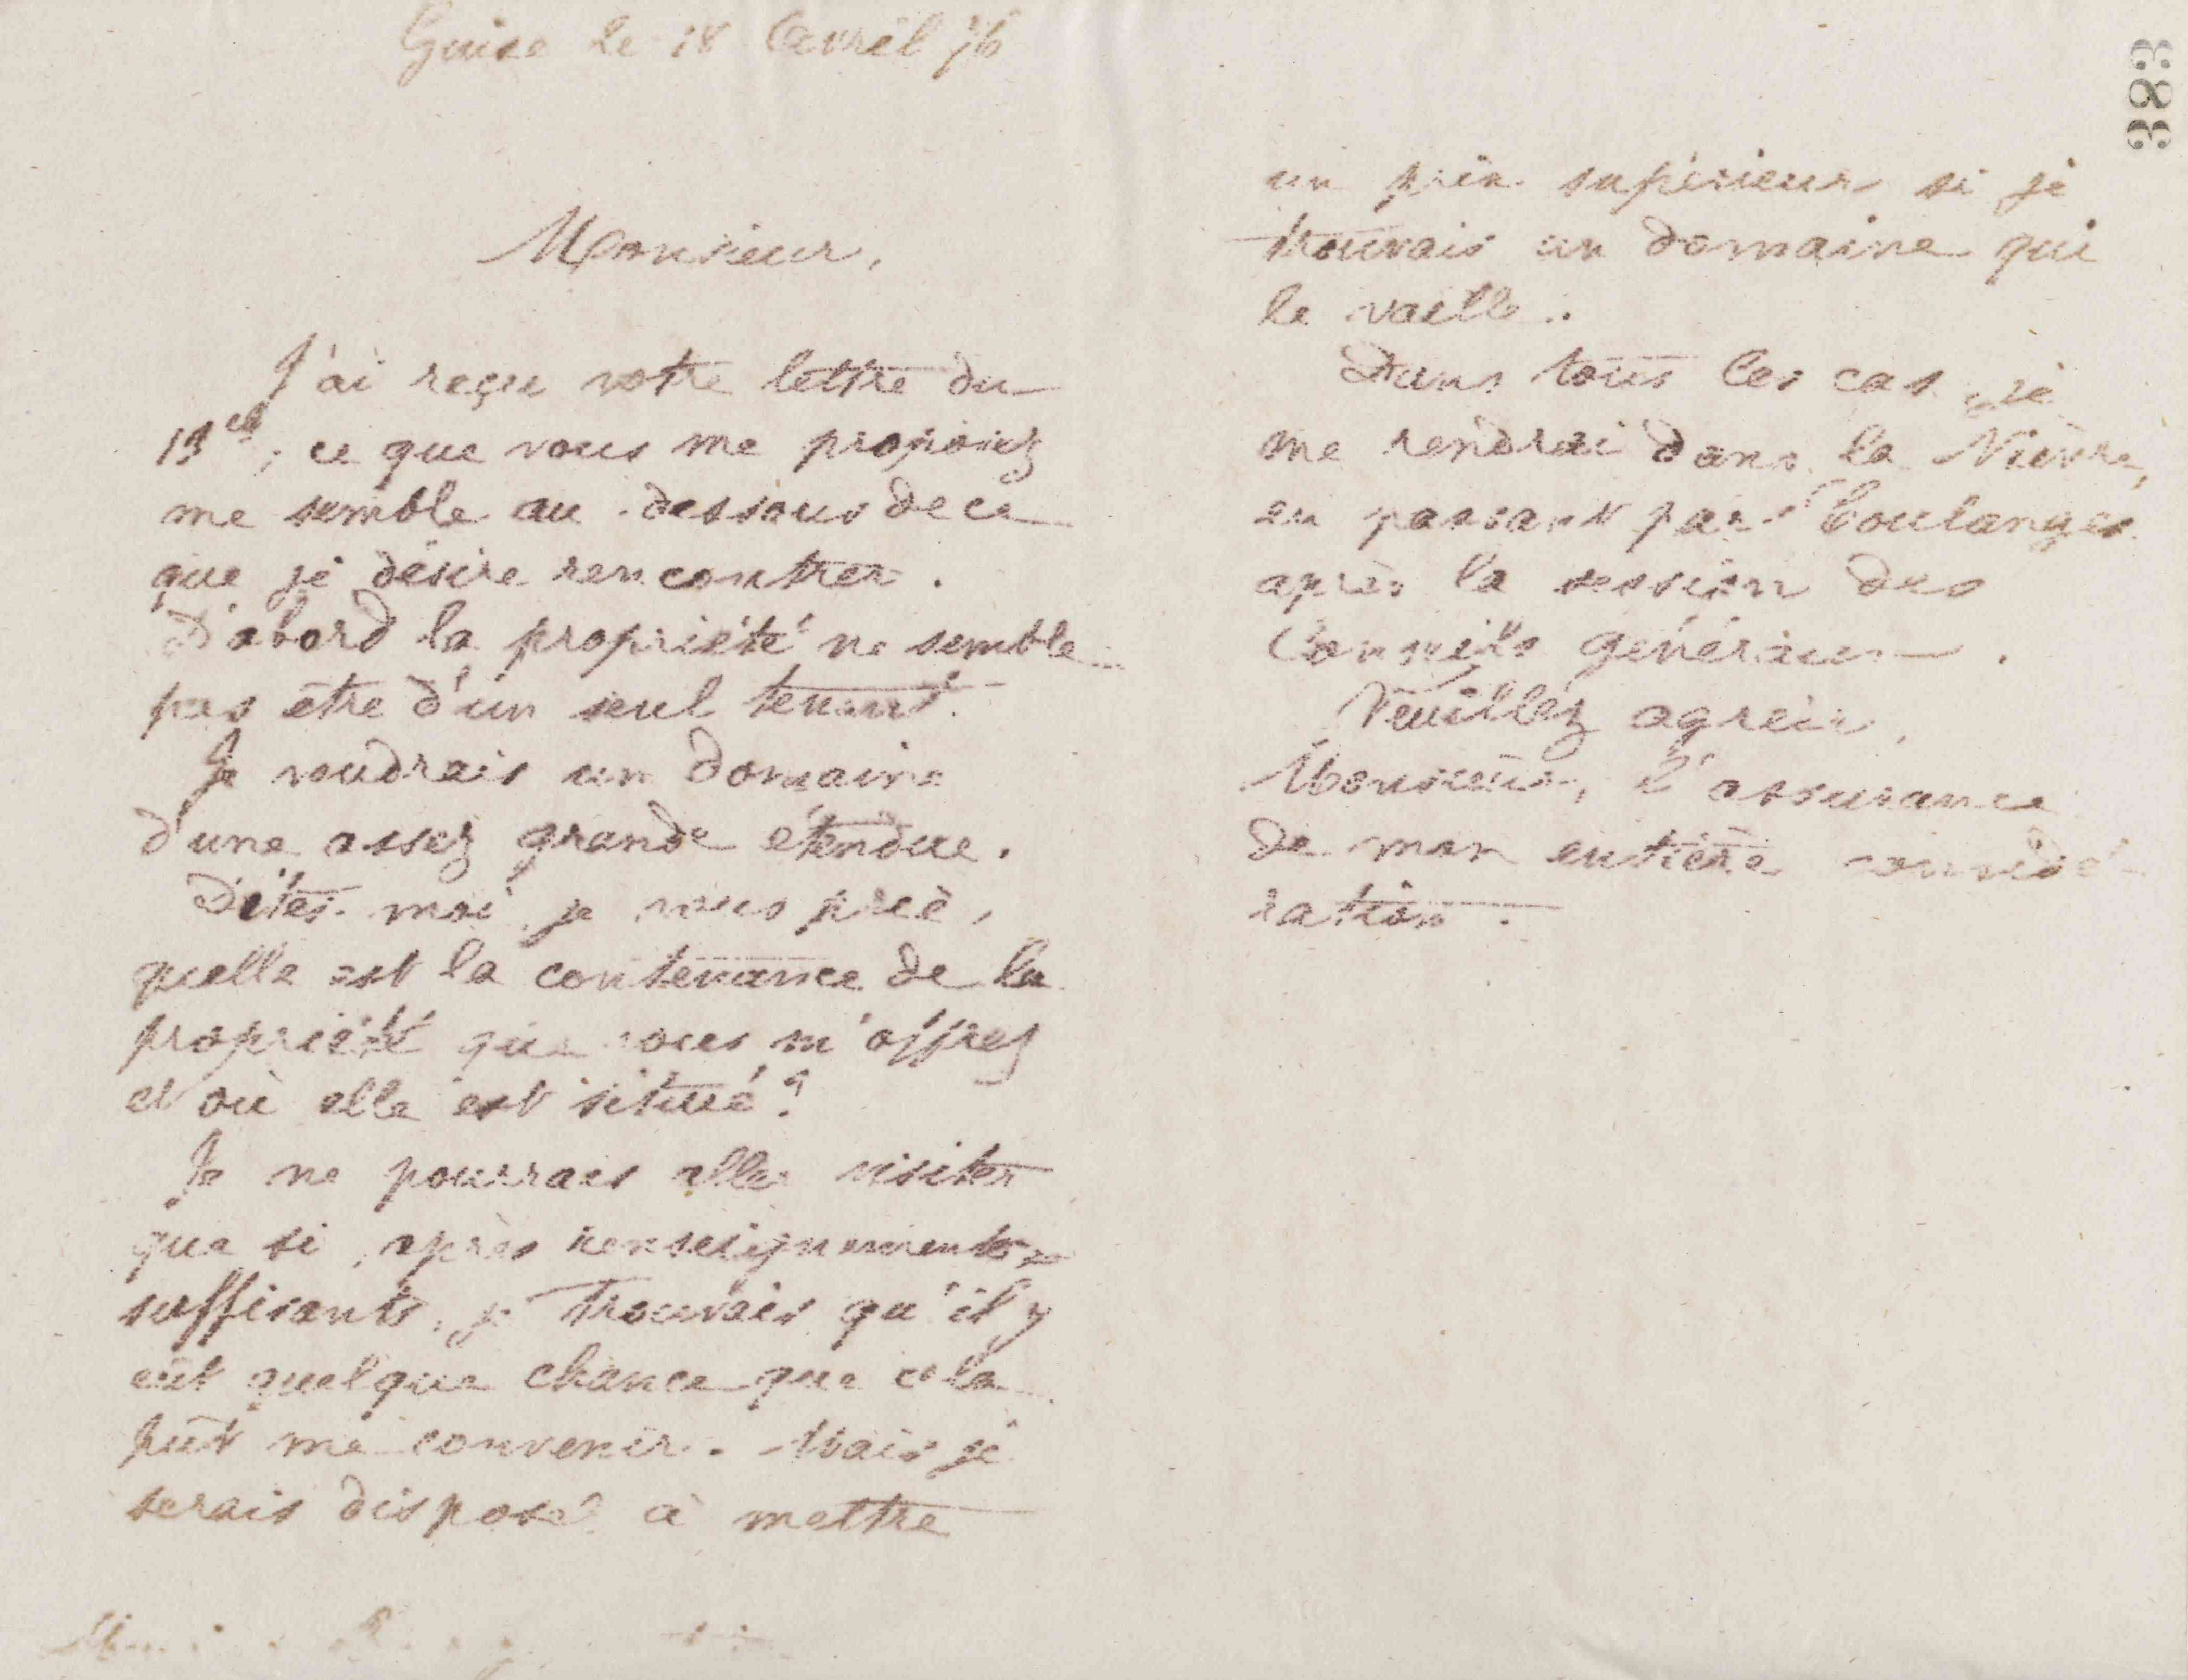 Guise le 18 Avril 76
Monsieur,
J'ai reçu votre lettre du
13 ct, ce que vous me proposez
me semble au-dessous de ce
que je désire rencontrer.
D'abord la propriété ne semble
pas être d'un seul tenant.
Je voudrais un domaine
d'une assez grande étendue.
Dites-moi, je vous prie,
quelle est la contenance de la
propriété que vous m'offrez
et où elle est situé?
Je ne pourrais aller visiter
que si, après renseignements
suffisants, je trouvais qu'il y
eût quelque chance que cela
pût me convenir. Mais je
serais disposé à mettre
383
un prix supérieur si je
trouvais un domaine qui
le vaille.
Dans tous les cas je
me rendrai dans la Nièvre,
en passant par Coulanges
après la session des
Conseils généraux.
Veuillez agréer,
Monsieur, l'assurance
de mon entière considé
ration.